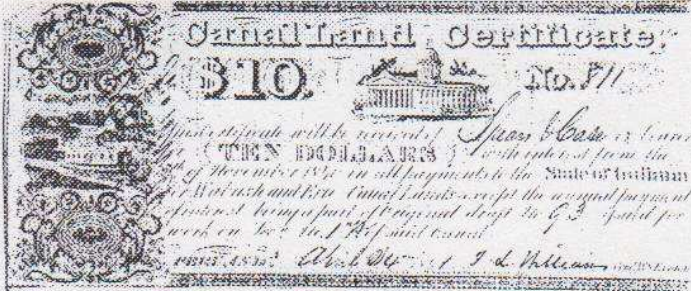 Canal Land Certificate,
$10. No. 811
This certificate will be received of Spears & Case or bearer
(TEN DOLLARS) with interest from the
of November 1842 in all payments to the State of Indiana
for Wabash and Erie Canal Lands except the annual payment
of interest being a part of original draft No 93 paid for
work on Sec. No 178 of said canal